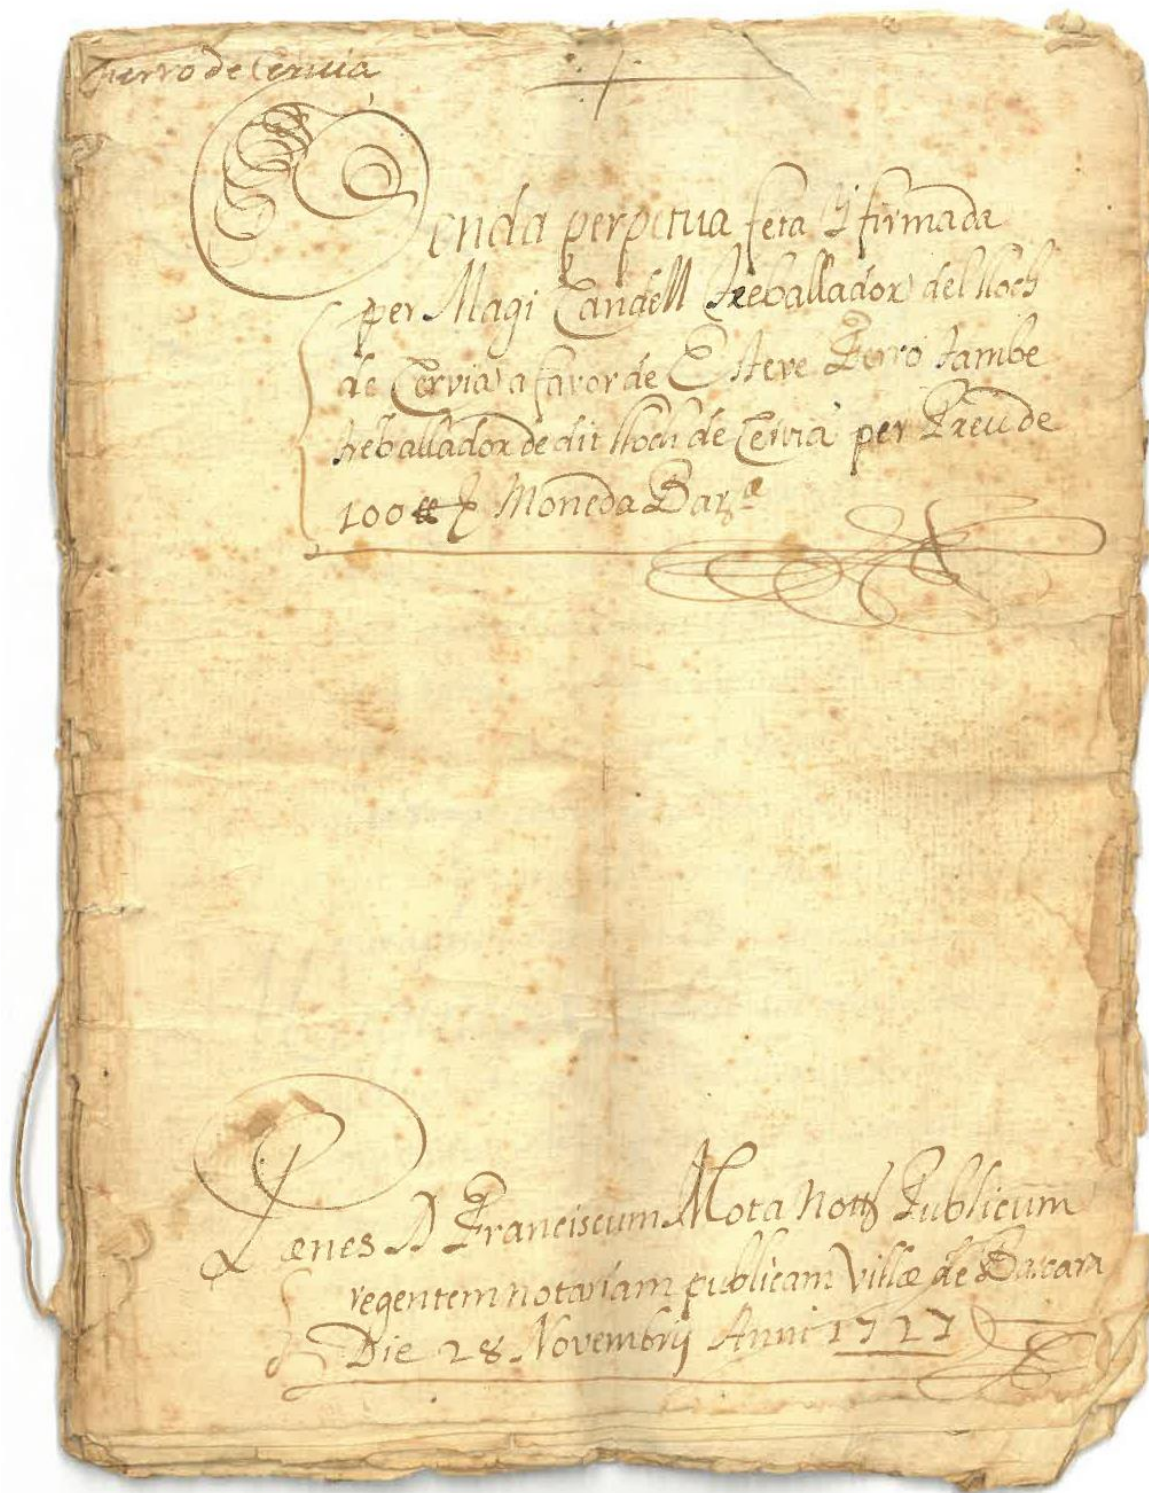 de Cervia
Venda perpetua feta y firmada
per Magi Candell treballador del lloch
de Cervia a favor de Esteve Ferro tambe
treballador de dit lloch de Cervia per Preu de
100 ll Moneda Bar.ª
Pænes D Franciscum Mota nott Publicum
regentem notariam publicam Villæ de Bascara
Die 28 Novembrij Anni 1727